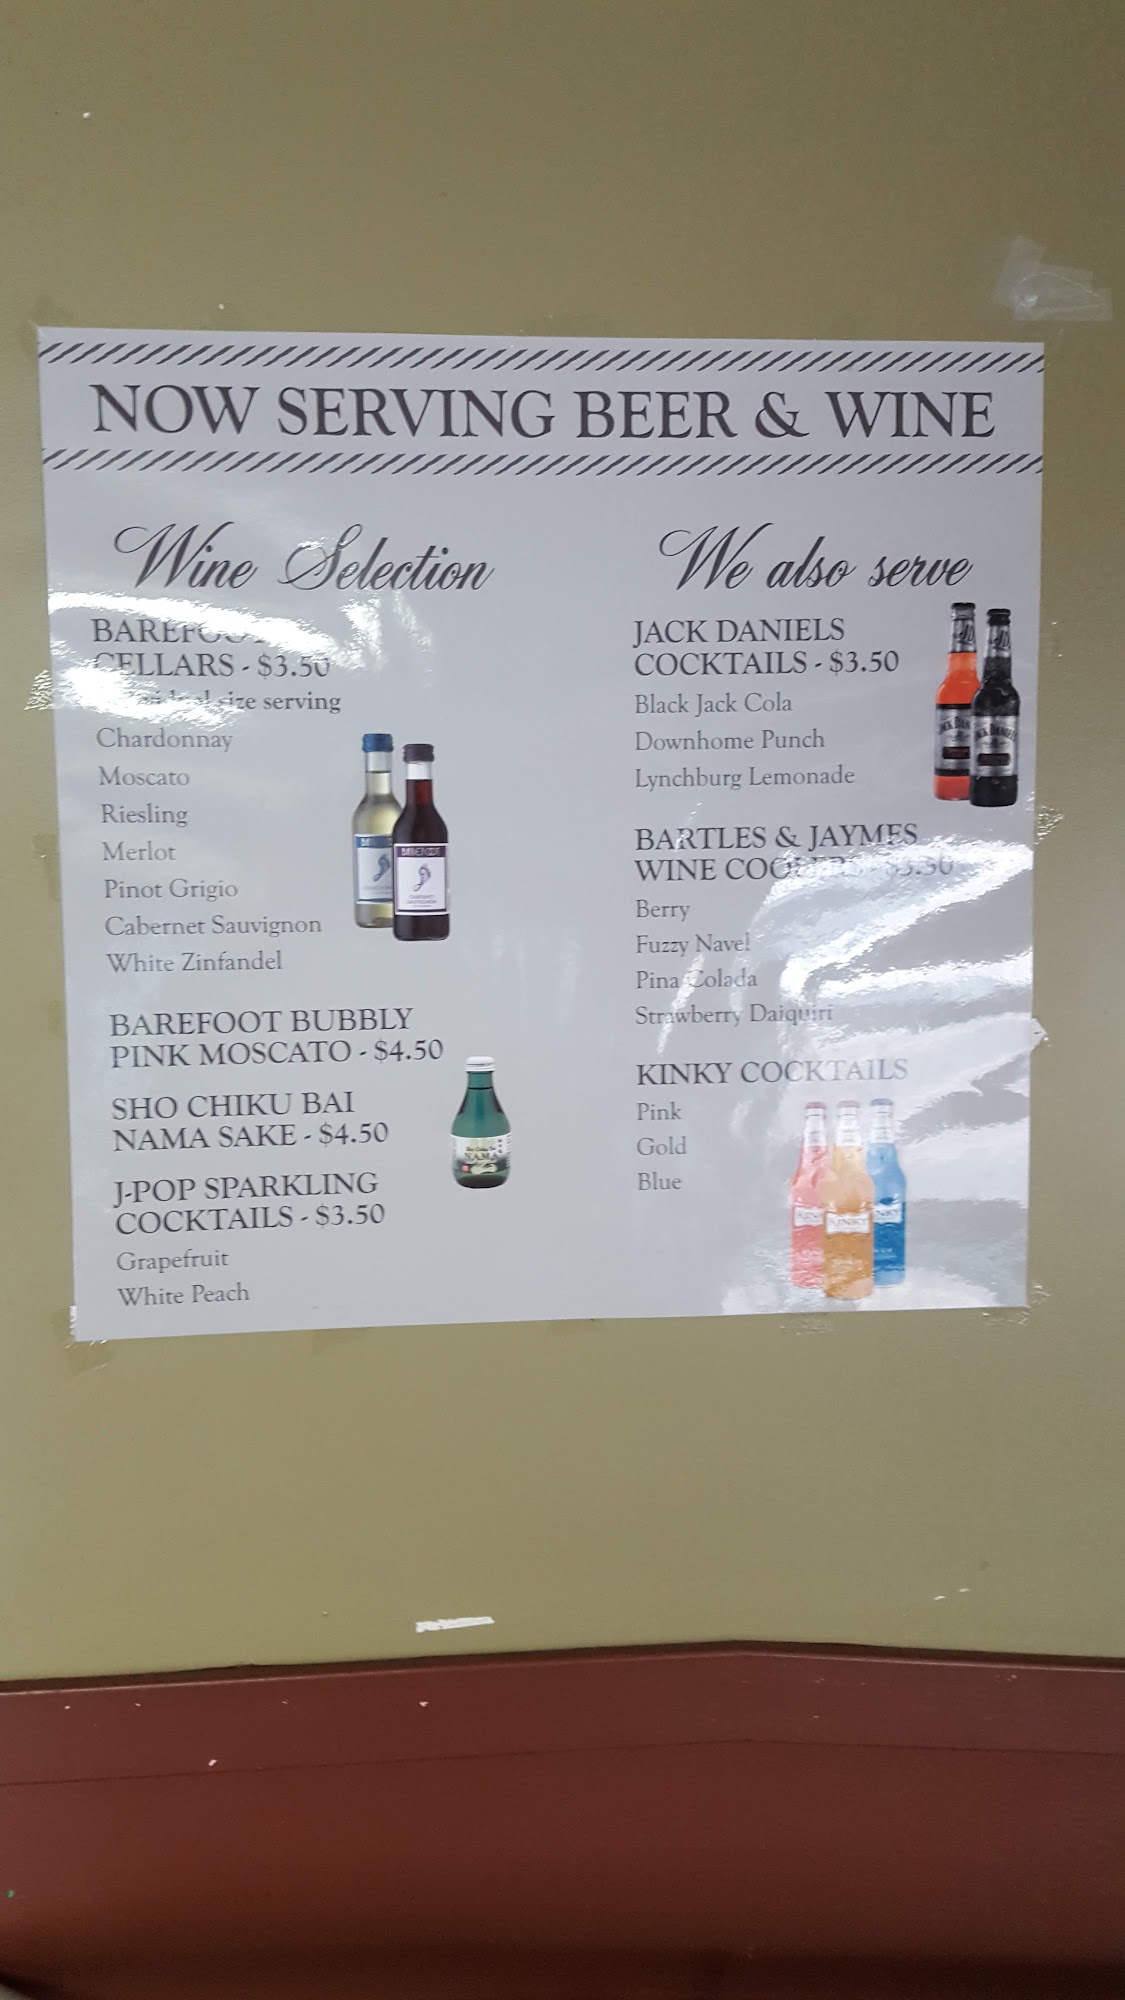 NOW SERVING BEER & WINE
Wine Selection
CELLARS - $3.50
size serving
Chardonnay
Moscato
Riesling
Merlot
Pinot Grigio
Cabernet Sauvignon
White Zinfandel
BAREFOOT BUBBLY
PINK MOSCATO - $4.50
SHO CHIKU BAI
NAMA SAKE - $4.50
J-POP SPARKLING
COCKTAILS - $3.50
Grapefruit
White Peach
BAREFOOT
NAMA
We also serve
JACK DANIELS
COCKTAILS - $3.50
Black Jack Cola
Downhome Punch
Lynchburg Lemonade
BARTLES & JAYMES
WINE COOLERS - $3.50
Berry
Fuzzy Navel
Pina Colada
Strawberry Daiquiri
KINKY COCKTAILS
Pink
Gold
Blue
JACK DANIELS
KINKY